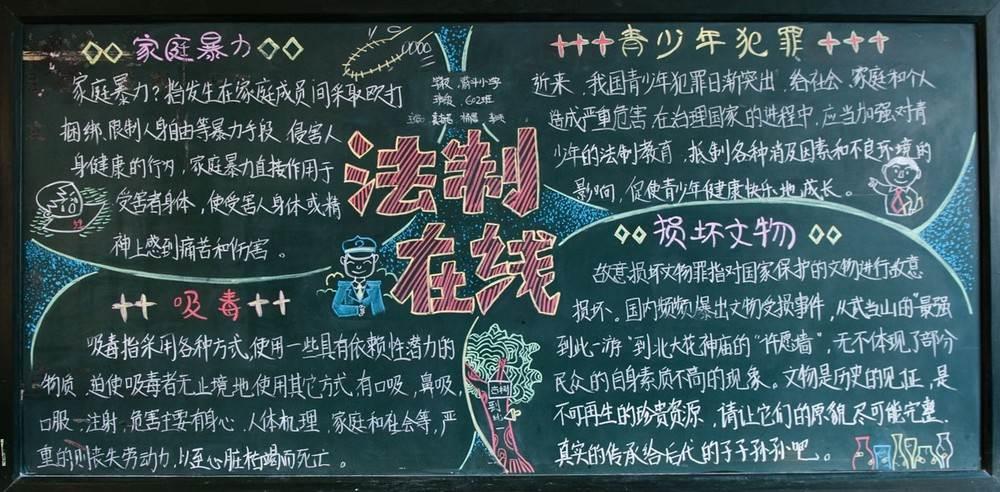 家庭暴力
家庭暴力？指发生在家庭成员间采取殴打
捆绑.限制人身自由等暴力手段.侵害人
身健康的行为,家庭暴力直接作用于
受害者身体,使受害人身体或精
神上感到痛苦和伤害。
小学
法制
在线
青少年犯罪
近来,我国青少年犯罪日渐突出.给社会.家庭和个人
造成严重危害.在治理国家的进程中,应当加强对青
少年的法制教育,抵制各种消及因素和不良环境的
影响,促使青少年健康快乐地成长。
吸毒
吸毒指采用各种方式,使用一些具有依赖性潜力的
物质.迫使吸毒者无止境地使用其它方式,有口吸,鼻吸,
口服.注射,危害主要有身心.人体机理.家庭和社会等,严
重的则丧失劳动力,以至心脏枯竭而死亡。
损坏文物
故意损坏文物罪指对国家保护的文物进行故意
损坏。国内频频爆出文物受损事件,从武当山的"最强
到此一游"到北大花神庙的"许愿墙",无不体现了部分
民众的自身素质不高的现象。文物是历史的见证,是
不可再生的珍贵资源,请让它们的原貌尽可能完整.
真实的传承给后代的子子孙孙吧。
到